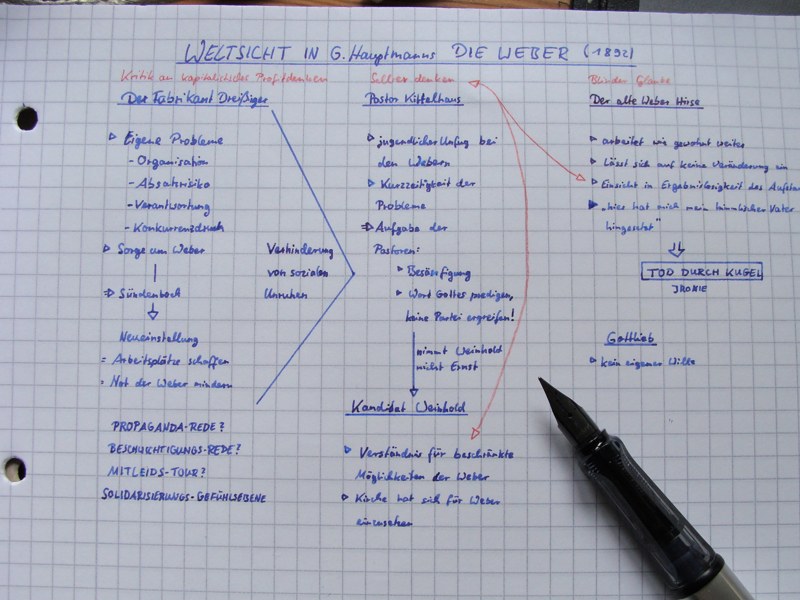 WELTSICHT IN G. Hauptmanns DIE WEBER (1892)
Kritik an kapitalistisches Profitdenken
Der Fabrikant Dreißiger
Eigene Probleme
- Organisation
- Absatzrisiko
- Verantwortung
- Konkurrenzdruck
Sorge um Weber
⇒ Sündenbock
Neueinstellung
= Arbeitsplätze schaffen
= Not der Weber mindern
PROPAGANDA-REDE?
BESCHWICHTIGUNGS-REDE?
MITLEIDS-TOUR?
SOLIDARISIERUNGS-GEFÜHLSEBENE
Verhinderung
von sozialen
Unruhen
Selber denken
Pastor Kittelhaus
jugendlicher Unfug bei
den Webern
Kurzzeitigkeit der
Probleme
⇒ Aufgabe der
Pastoren:
Besänftigung
Wort Gottes predigen,
keine Partei ergreifen!
nimmt Weinhold
nicht Ernst
Kandidat Weinhold
Verständnis für beschränkte
Möglichkeiten der Weber
Kirche hat sich für Weber
einzusetzen
Blinder Glaube
Der alte Weber Hilse
arbeitet wie gewohnt weiter
Lässt sich auf keine Veränderung ein
Einsicht in Ergebnislosigkeit des
"hier hat mich mein himmlischer Vater
hingesetzt"
TOD DURCH KUGEL
IRONIE
Gottlieb
kein eigener Wille